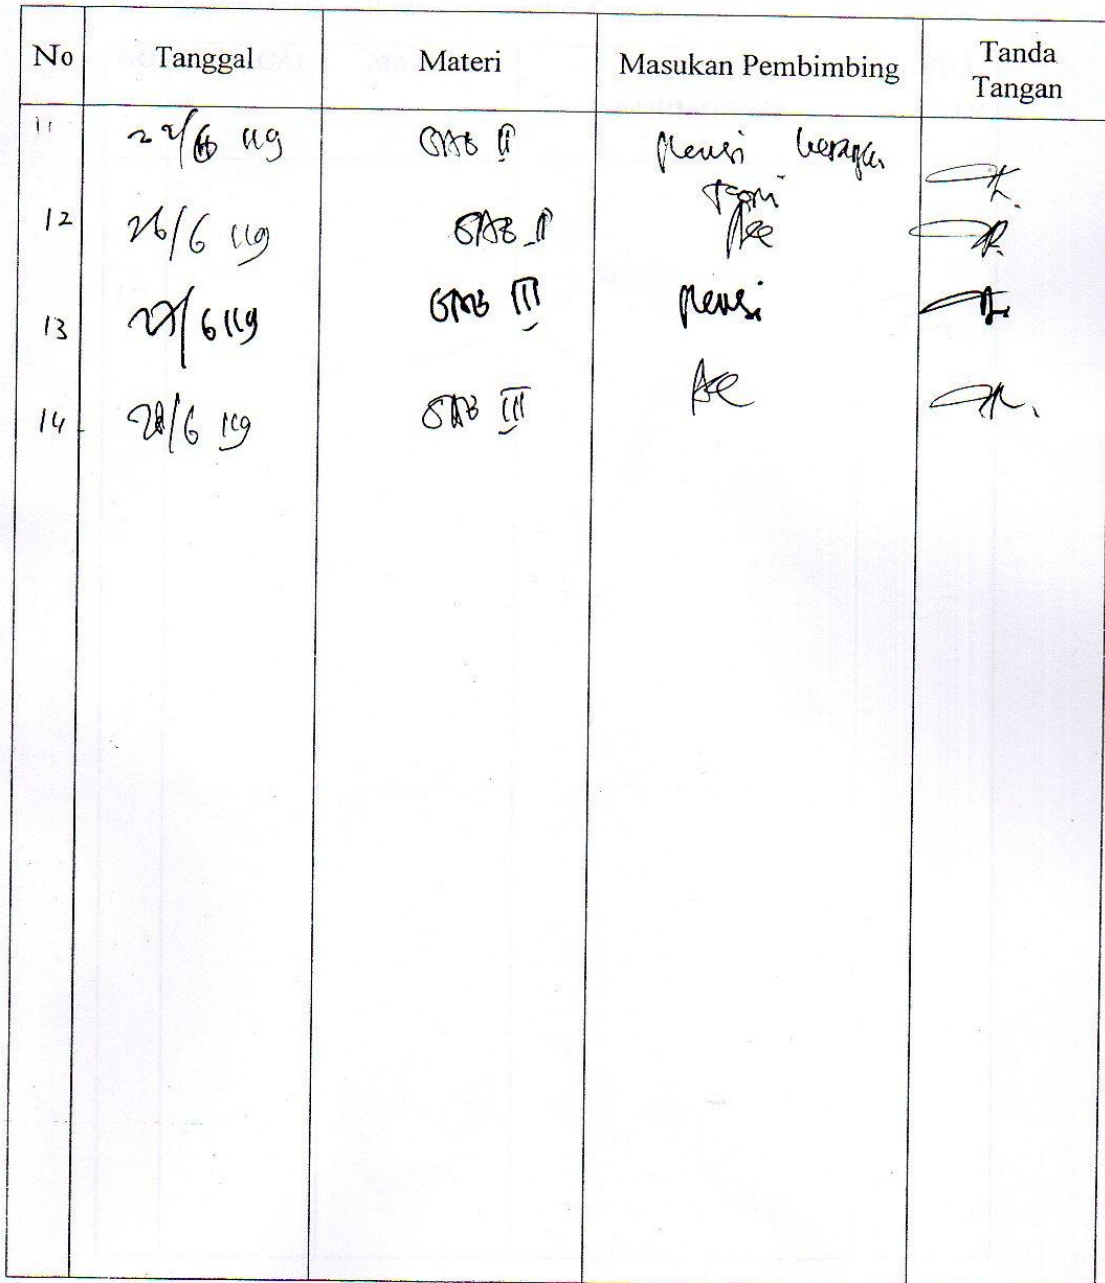 No Tanggal Materi Masukan Pembimbing Tanda Tangan
11 BAB II Revisi
12 26/6 119 BAB II Acc
13 27/6 119 BAB III Revisi
14 28/6 119 BAB III Acc